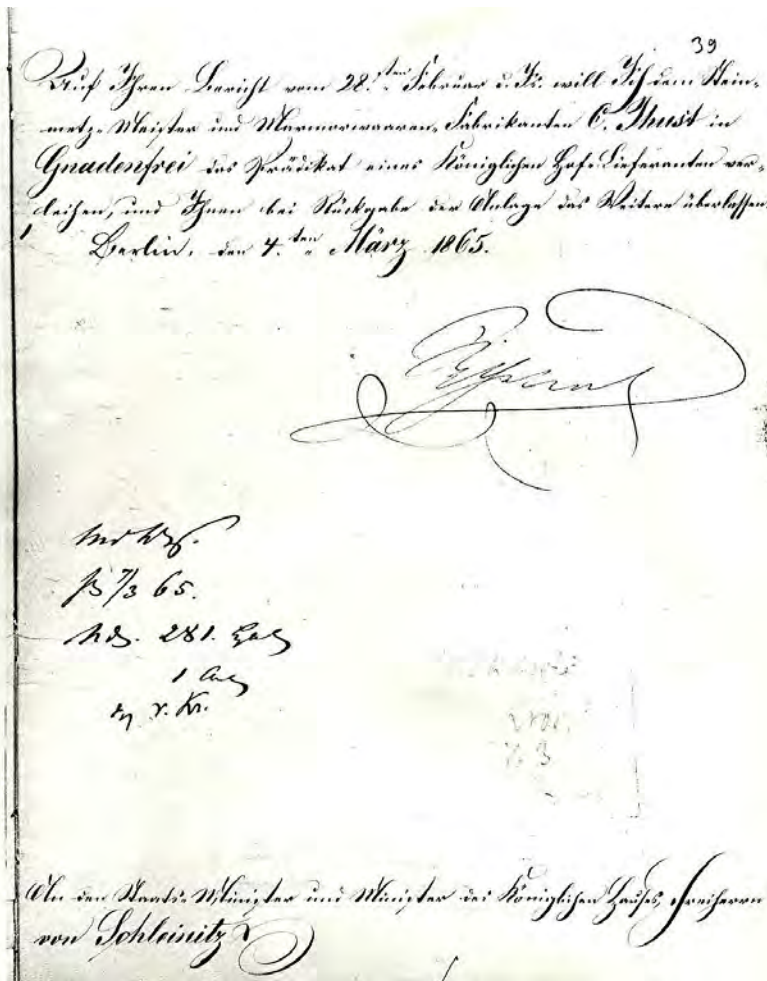 39
Auf Ihren Bericht vom 28.ten Februar d. Js. will Ich dem Stein-
metz-Meister und Marmorwaaren-Fabrikanten C. Thust in
Gnadenfrei das Prädikat eines Königlichen Hof-Lieferanten ver-
leihen, und Ihnen bei Rückgabe der Anlage das Weitere überlassen.
Berlin, den 4.ten März 1865.
7/3 65.
281.
1
An den Staats-Minister und Minister des Königlichen Hauses, Freiherrn
von Schleinitz